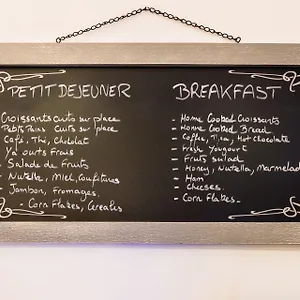 PETIT DEJEUNER
Croissants Cuits sur place
Petits Pains Cuits sur place
Café, Thé, Chocolat
Yaourts Frais
- Salade de Fruits
- Nutella, Miel, Confitures
- Jambon, Fromages
- Corn Flakes, Cereales
BREAKFAST
- Home Cooked Croissants
- Home Cooked Bread
- Coffee, Tea, Hot chocolate
- Fresh Yougourt
- Fruits salad
- Honey, Nutella, Marmelad
- Ham
- Cheeses
- Corn Flakes